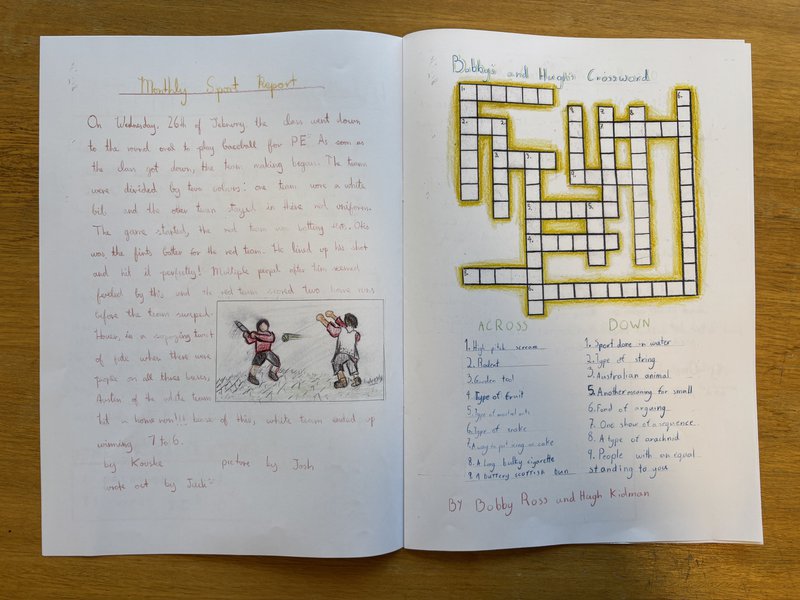 Monthly Sport Report
On Wednesday, 26th of Febuury, the class went down
to the round oval to play baseball for PE. As soon as
the class got down, the team making began. The teams
were divided by two colours: one team wore a white
bib and the other team stayed in there red uniform.
The game started, the red team was batting first. Otis
was the firts batter for the red team. He lined up his shot
and hit it perfectly! Multiple peopel after him seemed
by this and the red team scored two home runs
before the team swaped.
in a surprising twist
of fate when there were
people on all three bases,
of the white team
hit a home run!!! of this, white team ended up
winning 7 to 6.
by picture by Josh
wrote out by Jack
Bobby's and Hugh's Crossword
1.
6.
2.
2.
3.
7.
5.
5.
4.
3.
6.
ACROSS
1. High pitch scream
2. Rodent
3. Garden tool
4. Type of fruit
5. Type of martial arts
6. Type of snake
7. A way to put icing on cake
8. A long bulky cigarette
9. A buttery scottish bun
DOWN
1. Sport done in water
2. Type of string
3. Australian animal
5. Another meaning for small
6. Fond of arguing
7. One show of a sequence
8. A type of arachnid
9. People with an equal
standing to you
BY Bobby Ross and Hugh Kidman